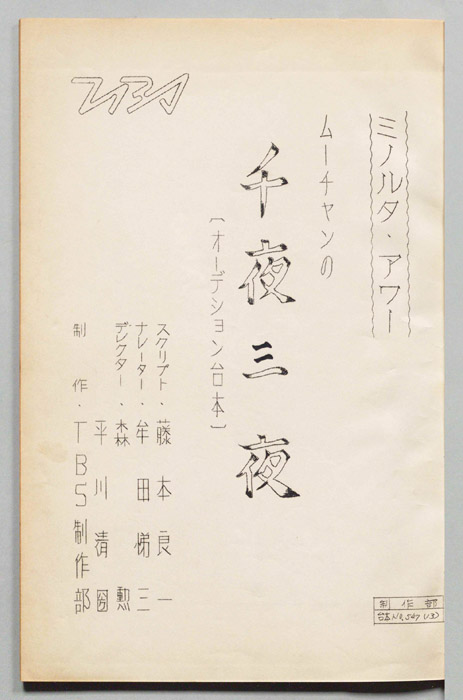 ミノルタ・アワー
ムーチャンの
千夜三夜
〔オーデション台本〕
スクリプト・藤本良一
ナレーター・牟田悌三
デレクター・森 勲
平川清圀
制作・TBS制作部
TBS
制作部
台本No.547